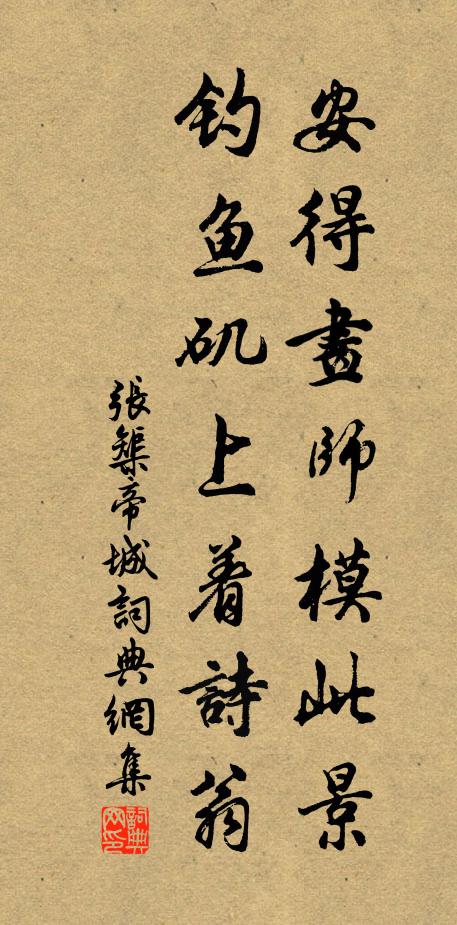 安得畫師模此景
钓鱼矶上着詩翁
張榘帝城詞典網集
詞典網印